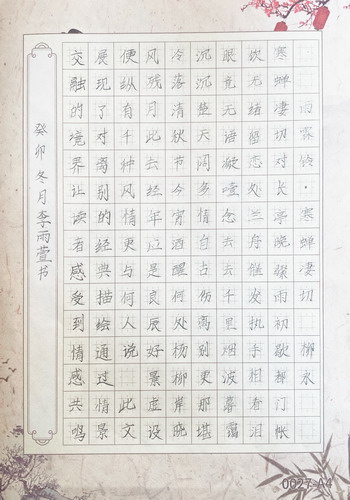 雨霖铃·寒蝉凄切 柳永
寒蝉凄切对长亭晚骤雨初歇都汀帐
饮无绪留恋处兰舟催发执手相看泪
眼竟无语凝噎念去去千里烟波暮霭
沉沉楚天阔多情自古伤离别更那堪
冷落清秋节今宵酒醒何处杨柳岸晓
风残月此去经年应是良辰好景虚设
便纵有千种风情更与何人说 此文
展现了对离别的经典描绘通过情景
交融的境界让读者感受到情感共鸣
癸卯冬月李雨萱书
0027-A4